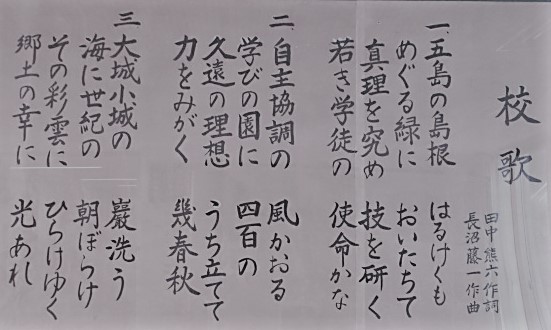 校歌
田中熊六作詞
長沼藤一作曲
一、五島の島根 はるけくも
めぐる緑に おいたちて
真理を究め 技を研く
若き学徒の 使命かな
二、自主協調の 風かおる
学びの園に 四百の
久遠の理想 うち立てて
力をみがく 幾春秋
三、大城小城の 巖洗う
海に世紀の 朝ぼらけ
その彩雲に ひらけゆく
郷土の幸に 光あれ